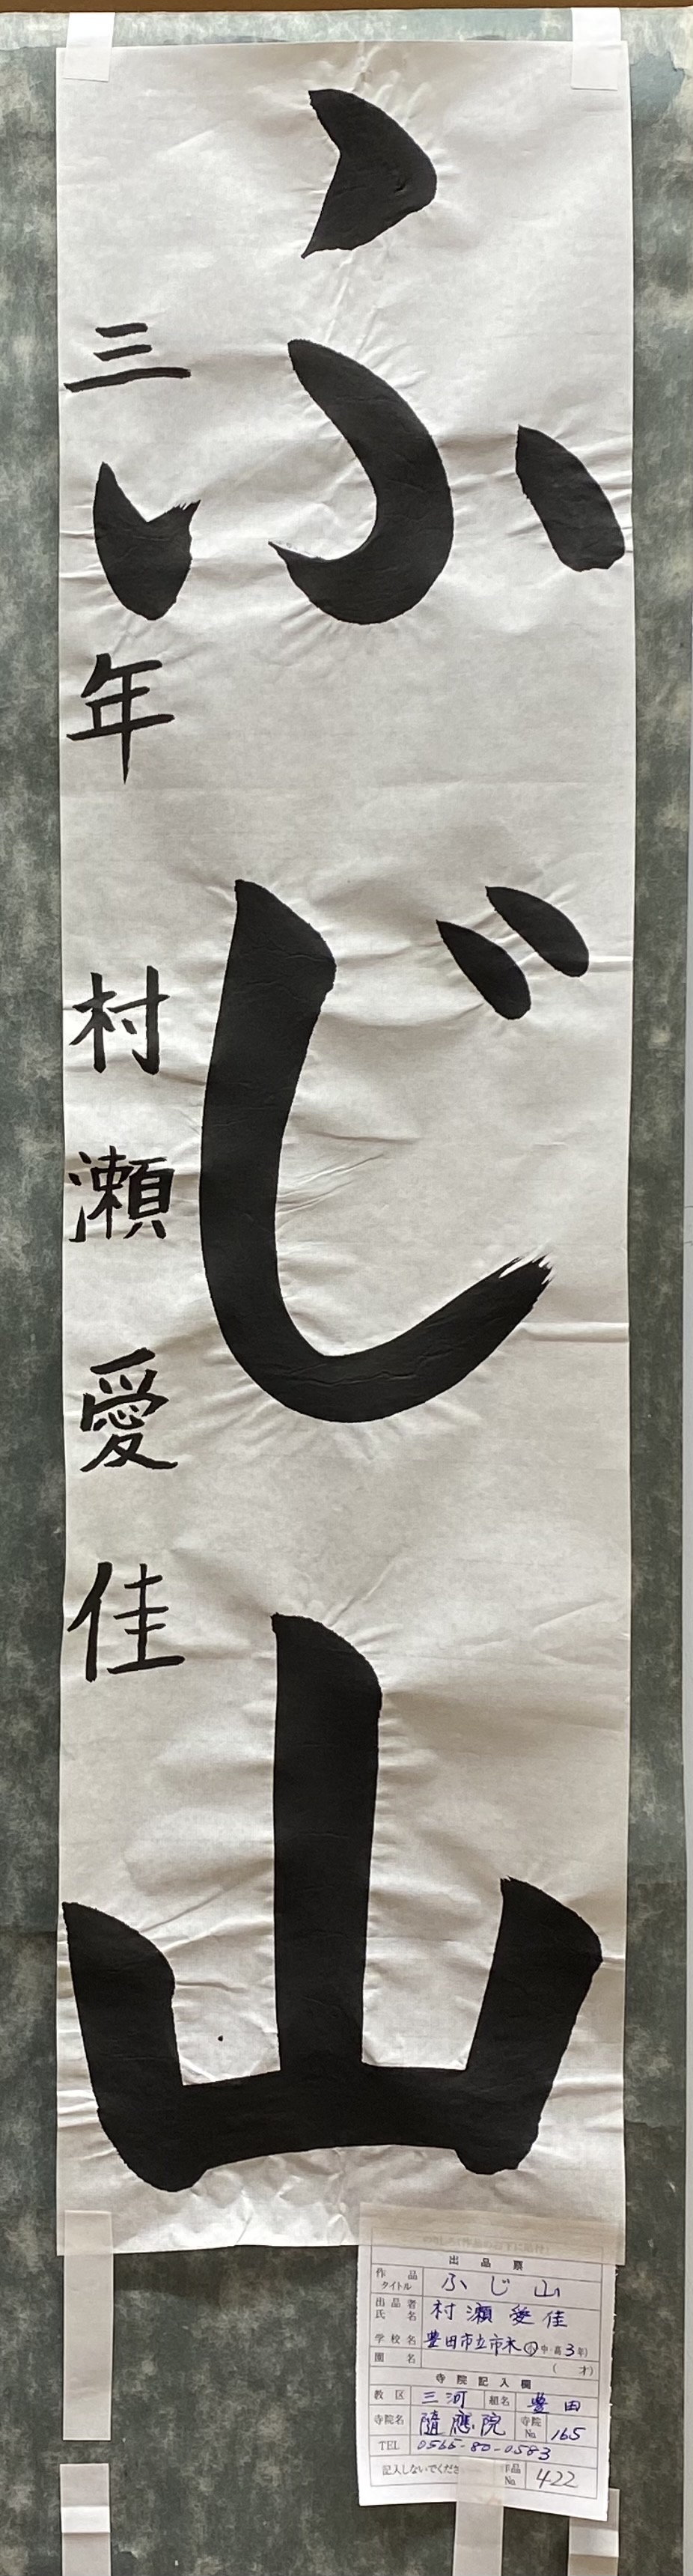 ふじ山
三年 村瀬愛佳
出品票
作品タイトル ふじ山
出品者氏名 村瀬愛佳
学校名 豊田市立市木 小・中・高 3年
園名 ( 才)
寺院記入欄
教区 三河 組名 豊田
寺院名 隨應院 寺院No. 165
TEL 0565-80-0583
記入しないでくださ 作品No. 422